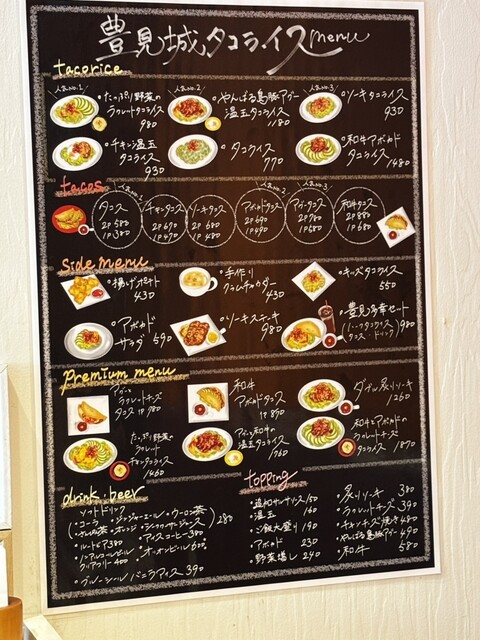 豊見城タコライスmenu
tacorice
人気no.1
・たっぷり野菜の
ラクレットタコライス
980
人気no.2
・やんばる島豚アグー
温玉タコライス
1180
人気no.3
・ソーキタコライス
930
・チキン温玉
タコライス
930
・タコライス
770
・和牛アボカド
タコライス 1480
tacos
タコス
2P 580
1P 380
チキンタコス
2P 670
1P 470
ソーキタコス
2P 680
1P 480
人気no.2
アボカドタコス
2P 690
1P 490
人気no.3
アグータコス
2P 780
1P 580
和牛タコス
2P 880
1P 680
Side menu
・揚げポテト
430
・手作り
クラムチャウダー
430
・キッズタコライス
550
・アボカド
サラダ 590
・ソーキステーキ
980
・豊見多幸セット
(ハーフタコライス
タコス・ドリンク) 980
Premium menu
・アグー
ラクレットチーズ
タコス 1P 780
・和牛
アボカドタコス
1P 850
・ダブル炙りソーキ
1260
・たっぷり野菜の
ラクレット
チキンタコライス
1460
・アグーと和牛の
温玉タコライス
1760
・和牛とアボカドの
ラクレットチーズ
タコライス 1870
drink・beer
・ソフトドリンク
(・コーラ ・ジンジャーエール・ウーロン茶
・さんぴん茶・オレンジ・シークヮーサージュース) 280
・ルートビア380 ・アイスコーヒー 380
・ノンアルコールビール
クリアフリー 400 ・オリオンビール 600
・ブルーシールバニラアイス 390
topping
・追加サルサソース 150
・温玉 160
・ご飯大盛り 190
・アボカド 230
・野菜増し 240
・炙りソーキ 380
・ラクレットチーズ 390
・チキンチーズ焼き 480
・やんばる島豚アグー 490
・和牛 580